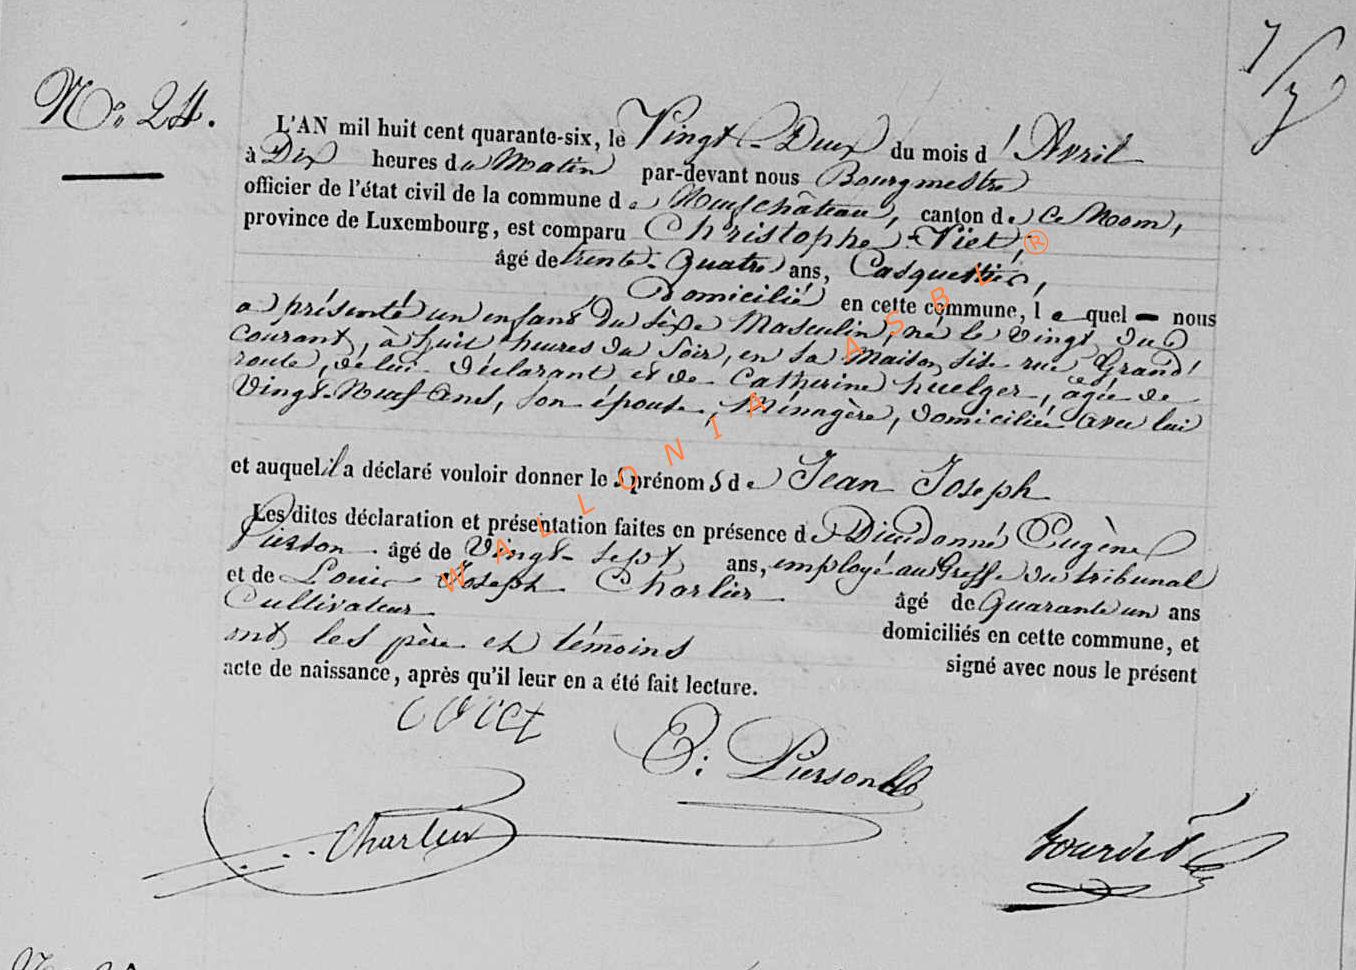 N° 24.
L'AN mil huit cent quarante-six, le Vingt-Deux du mois d'Avril
à Dix heures du Matin par-devant nous Bourgmestre
officier de l'état civil de la commune de Neufchâteau, canton de Ce Nom,
province de Luxembourg, est comparu Christophe Viet,
âgé de trente-Quatre ans, Casquettier,
Domicilié en cette commune, lequel — nous
a présenté un enfant du sèxe Masculin, né le vingt du
courant, à huit heures du Soir, en sa Maison sise rue Grand'
route, de lui déclarant et de Catherine huelger, âgée de
Vingt-Neuf Ans, son épouse, Ménagère, domiciliée avec lui
et auquel il a déclaré vouloir donner les prénoms de Jean Joseph
Les dites déclaration et présentation faites en présence de Dieudonné Eugène
Pierson âgé de Vingt-sept ans, employé au Greffe du tribunal
et de Louis Joseph Charlier âgé de Quarante un ans
Cultivateur domiciliés en cette commune, et
ont les père et témoins signé avec nous le présent
acte de naissance, après qu'il leur en a été fait lecture.
Viet
E: Pierson
Charlier
WALLONIA ASBL ®